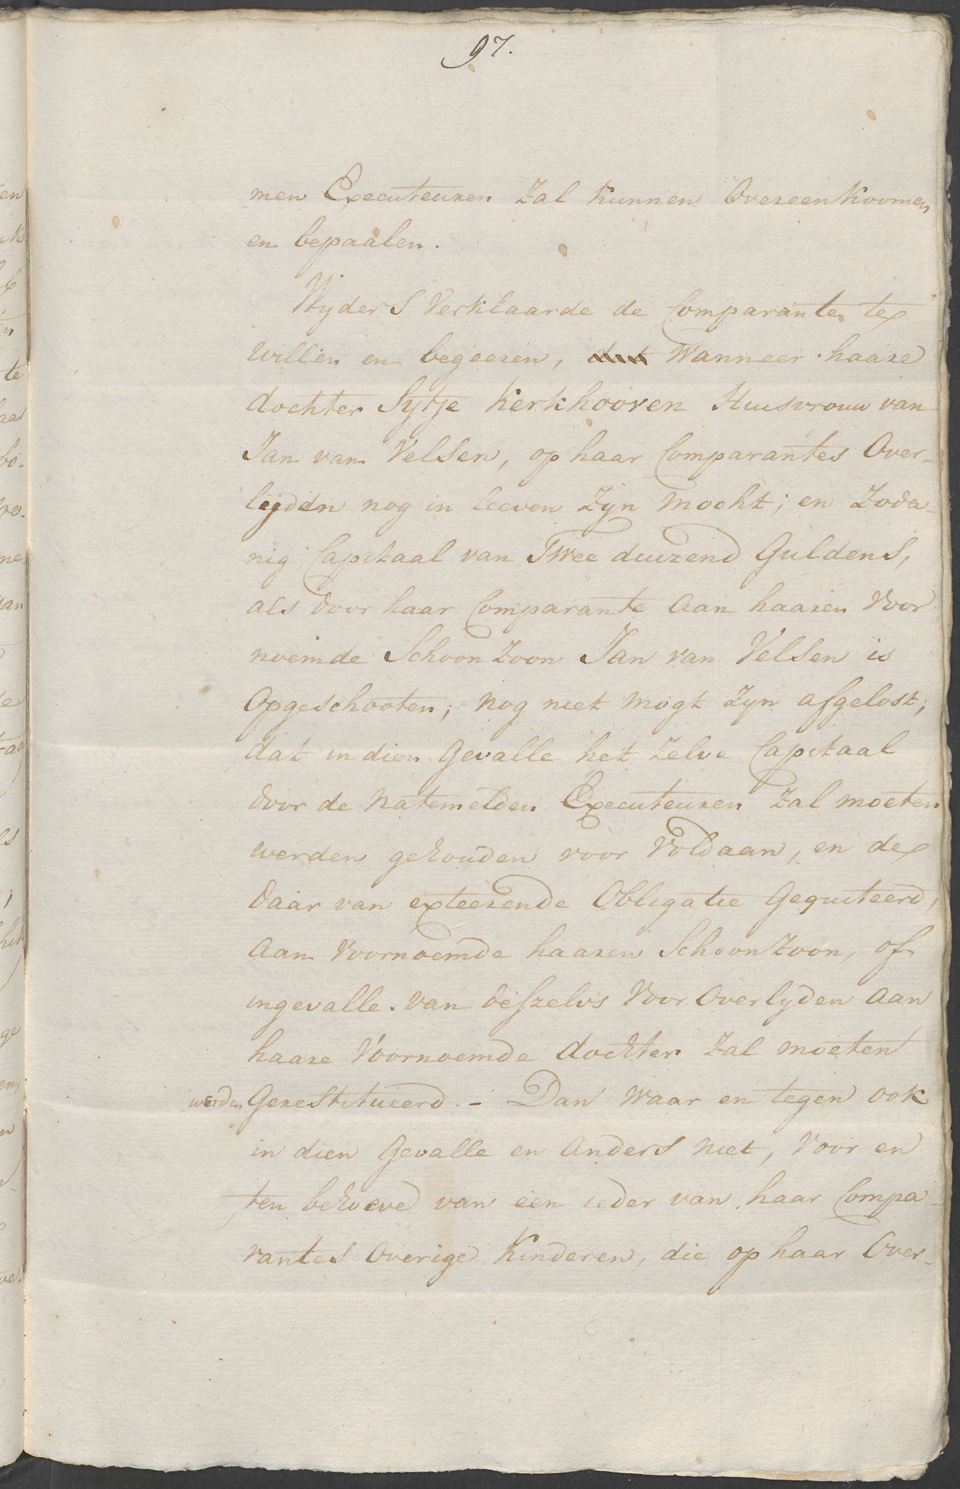 97.
men Executeuren zal kunnen Overeenkoomen
en bepaalen.
Wyders Verklaarde de Comparante te
willen en begeeren, dat Wanneer haare
dochter Sytje Kerkhooven Huisvrouw van
Jan van Velsen, op haar Comparantes Over-
lijden nog in leeven Zyn mocht; en Zoda-
nig Capitaal van Twee duizend Guldens,
als door haar Comparante aan haaren Voor
noemde Schoon Zoon Jan van Velsen is
Opgeschooten; nog niet mogt Zyn afgelost;
dat in dien Gevalle het Zelve Capitaal
door de Natemelden Executeuren Zal moeten
werden gehouden voor Voldaan, en de
daar van exteerende Obligatie Gequiteerd,
aan Voornoemde haaren Schoon Zoon, of
ingevalle van deszelvs Voor Overlyden aan
haare Voornoemde dochter Zal moeten
werden Gerestitueerd. - Dan Waar en tegen ook
in dien Gevalle en Anders niet, Voor en
ten behoeve van een ieder van haar Compa-
rantes Overige Kinderen, die op haar Over-